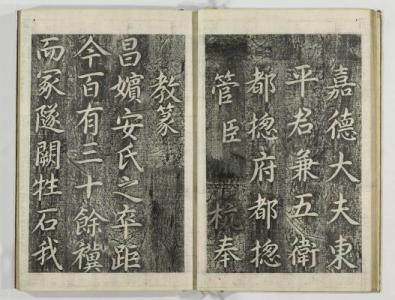 嘉德大夫東
平君兼五衛
都摠府都摠
管臣 杭奉
教篆
昌嬪安氏之卒距
今百有三十餘禩
而冢隧闕牲石我